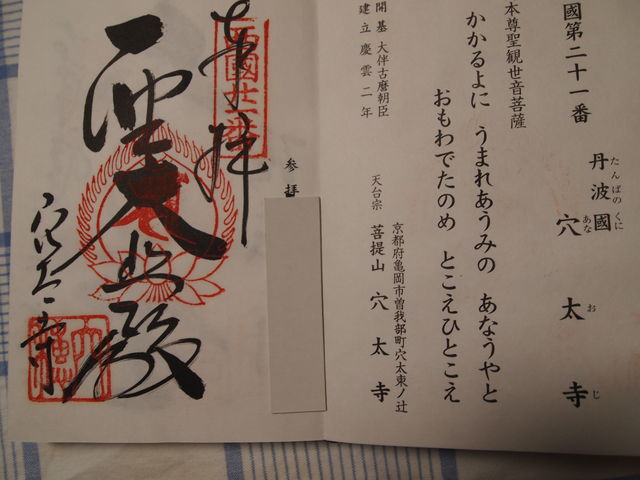 國第二十一番
丹波國 穴太寺
たんばの くに
あな お じ
本尊聖観世音菩薩
かかるよに うまれあうみの あなうやと
おもわでたのめ とこえひとこえ
開基 大伴古麿朝臣
建立 慶雲二年
京都府亀岡市曽我部町穴太東ノ辻
天台宗 菩提山 穴太寺
参拝
奉拝
西國廿一番
聖大悲殿
穴太寺